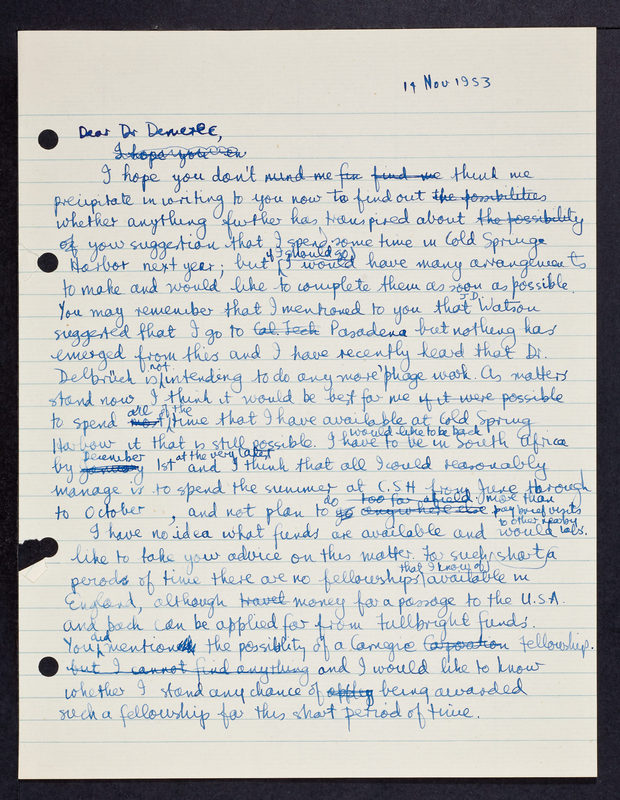 14 Nov 1953
Dear Dr Demerec,
I hope you
I hope you don't mind me for find me think me
precipitate in writing to you now to find out the possibilities
whether anything further has transpired about the possibility
of your suggestion that I spend some time in Cold Springs
if I should go
Harbor next year; but I would have many arrangements
to make and would like to complete them as soon as possible.
J.D.
You may remember that I mentioned to you that Watson
suggested that I go to Cal. Tech Pasadena but nothing has
emerged from this and I have recently heard that Dr.
not
Delbrück is intending to do any more 'phage work. As matters
stand now I think it would be best for me if it were possible
all of the
to spend most time that I have available at Cold Spring
would like to be back
Harbour if that is still possible. I have to be in South Africa
December at the very latest
by January 1st and I think that all I could reasonably
manage is to spend the summer at C.S.H from June through
do too far afield more than
to October, and not plan to go anywhere else pay brief visits
to other nearby
I have no idea what funds are available and would labs.
like to take your advice on this matter. For such short a
that I know of
periods of time there are no fellowships available in
England, although travel money for a passage to the U.S.A.
and back can be applied for from Fullbright funds.
did
You mention the possibility of a Carnegie Corporation Fellowship.
but I cannot find anything and I would like to know
whether I stand any chance of being awarded
such a fellowship for this short period of time.